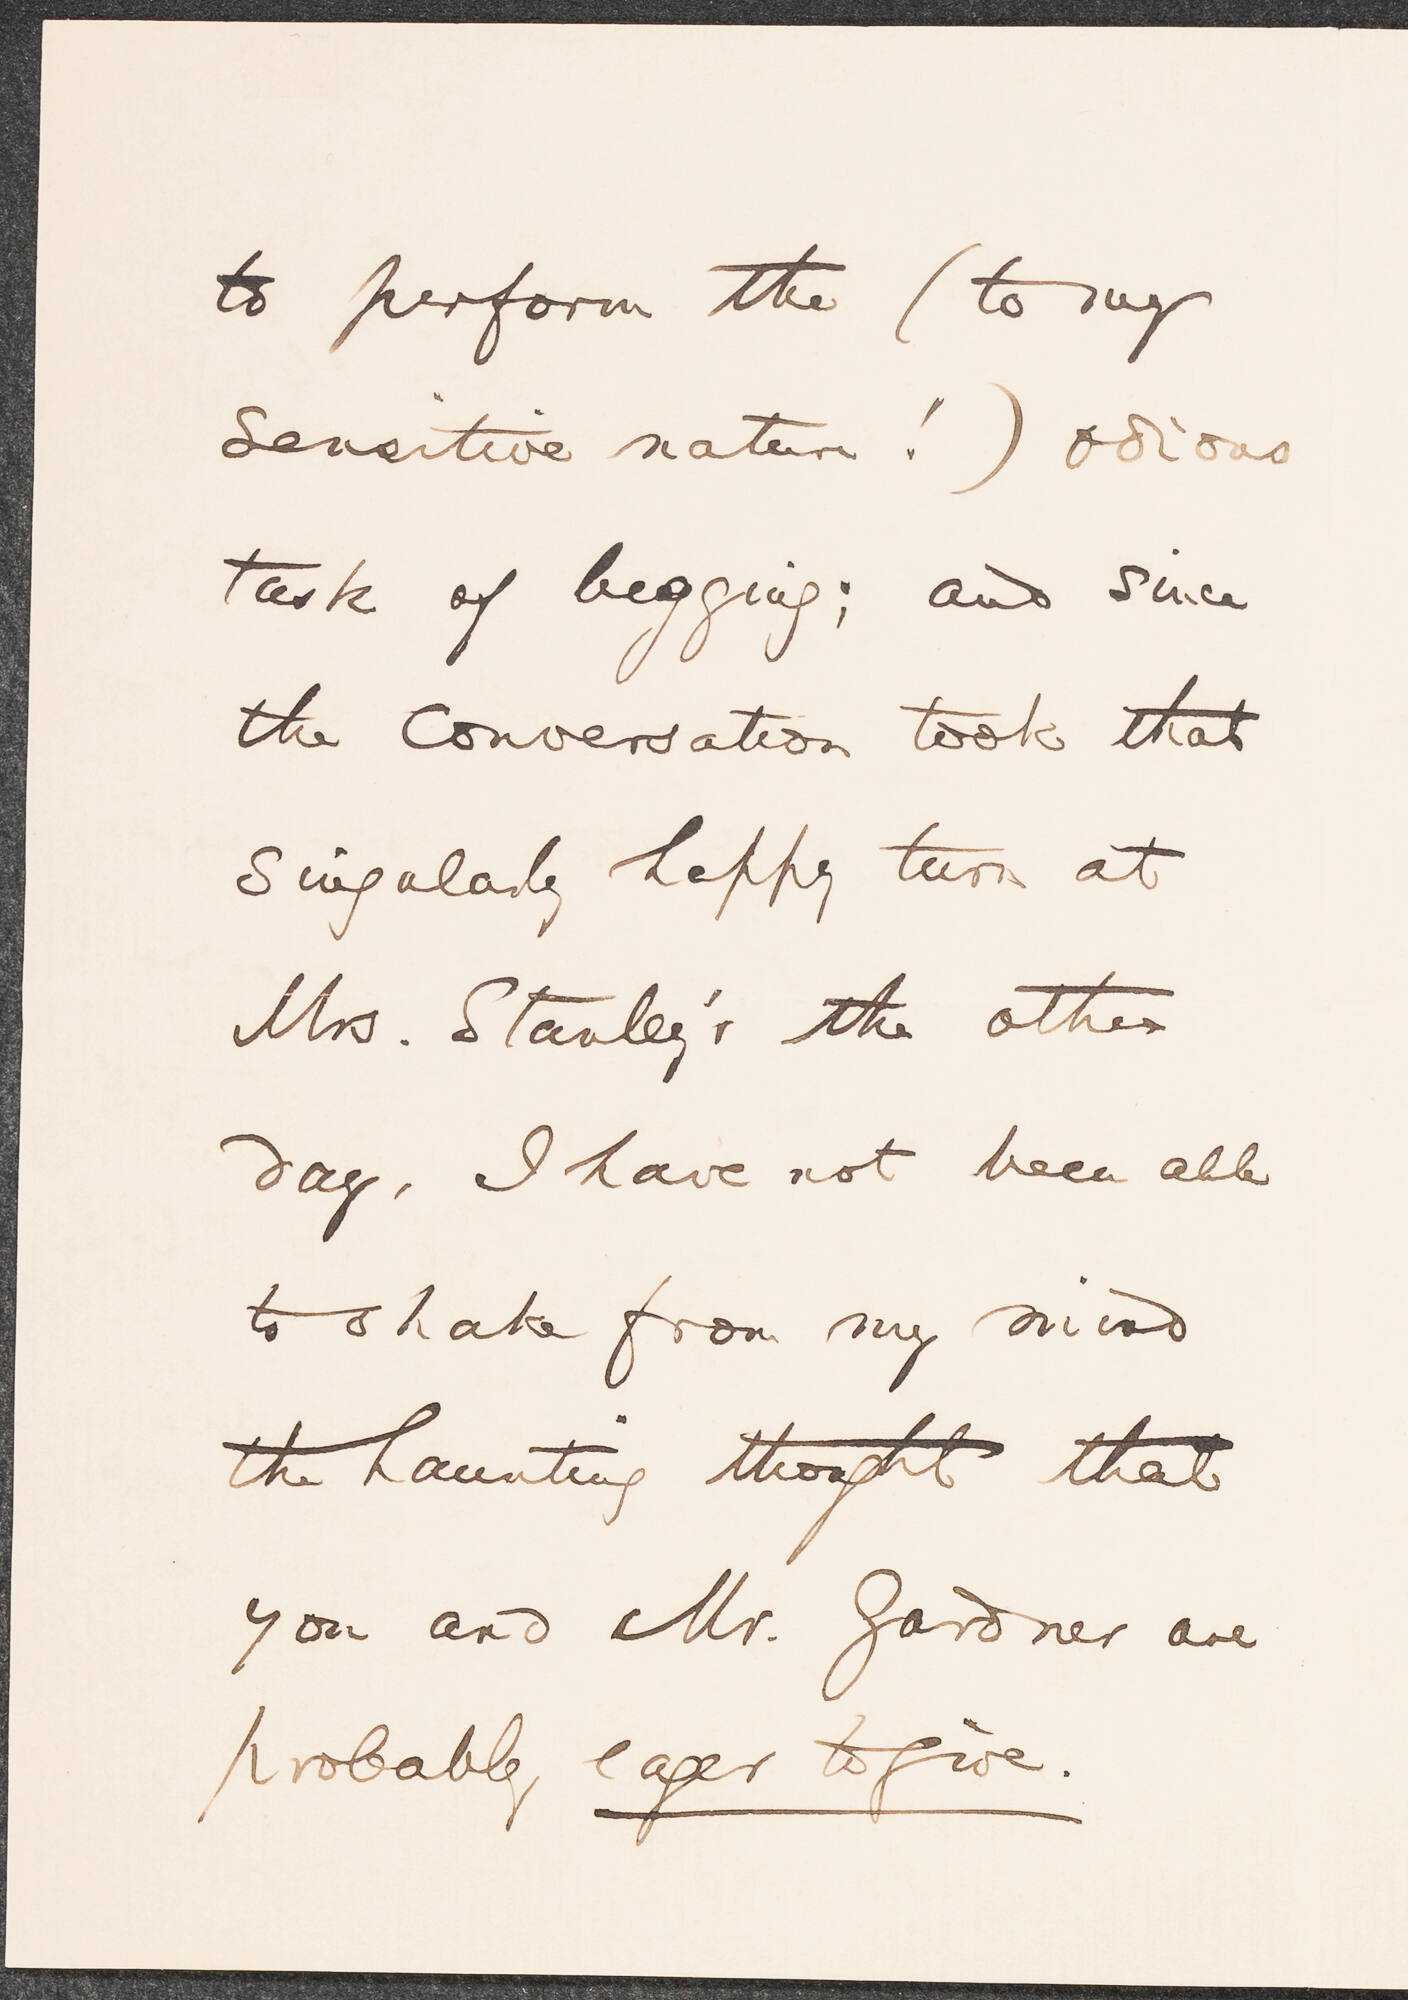 to perform the (to my
sensitive nature!) odious
task of begging; and since
the conversation took that
singularly happy turn at
Mrs. Stanley's the other
day, I have not been able
to shake from my mind
the haunting thought that
you and Mr. Gardner are
probably eager to give.